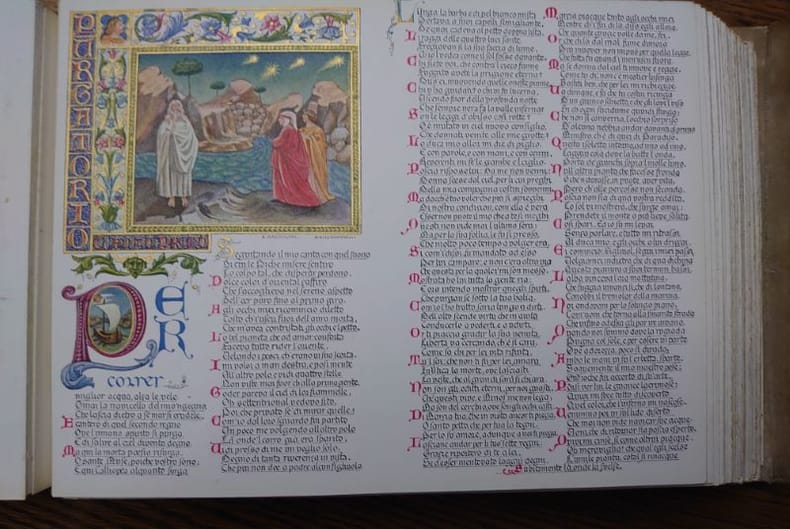 PURGATORIO
CANTO PRIMO
PER
correr
miglior acqua, alza le vele
Omai la navicella del mio ingegno
Che lascia dietro a sé mar sì crudele;
E canterò di quel secondo regno
Ove l'umano spirito si purga
E di salire al ciel diventa degno.
Ma qui la morta poesia risurga,
O sante Muse, poiché vostro sono,
E qui Calliopè alquanto surga
Seguitando il mio canto con quel suono
Di cui le Piche misere sentiro
Lo colpo tal, che disperar perdono.
Dolce color d'oriental zaffiro
Che s'accoglieva nel sereno aspetto
Dell'aer puro sino al primo giro,
Agli occhi miei ricominciò diletto
Tosto ch'i' uscii fuor dell'aura morta,
Che m'avea contristati gli occhi e il petto.
Lo bel pianeta che ad amar conforta
Faceva tutto rider l'oriente,
Velando i pesci ch'erano in sua scorta.
I' mi volsi a man destra, e posi mente
All'altro polo e vidi quattro stelle
Non viste mai fuor che alla prima gente.
Goder pareva il ciel di lor fiammelle.
Oh settentrional vedovo sito,
Poi che privato se' di mirar quelle!
Com'io dal loro sguardo fui partito
Un poco me volgendo all'altro polo
Là onde il carro già era sparito,
Vidi presso di me un veglio solo,
Degno di tanta riverenza in vista,
Che più non dee a padre alcun figliuolo
Lunga la barba e di pel bianco mista
Portava, a' suoi capelli simigliante,
De' quai cadeva al petto doppia lista.
Li raggi delle quattro luci sante
Fregiavan sì la sua faccia di lume,
Ch'io 'l vedea come il sol fosse davante.
Chi siete voi, che contro al cieco fiume
Fuggito avete la prigione eterna?
Diss'ei movendo quelle oneste piume.
Chi v'ha guidati? o chi vi fu lucerna,
Uscendo fuor della profonda notte
Che sempre nera fa la valle inferna?
Son le leggi d'abisso così rotte?
O è mutato in ciel nuovo consiglio,
Che dannati venite alle mie grotte?
Lo duca mio allor mi diè di piglio,
E con parole, e con mani, e con cenni,
Reverenti mi fe' le gambe e il ciglio.
Poscia rispose lui: Da me non venni;
Donna scese dal ciel, per li cui preghi
Della mia compagnia costui sovvenni.
Ma da ch'è tuo voler che più si spieghi
Di nostra condizion, com'ella è vera
Esser non puote il mio che a te si nieghi.
Questi non vide mai l'ultima sera;
Ma per la sua follia le fu sì presso,
Che molto poco tempo a volger era.
Sì com'io dissi, fui mandato ad esso
Per lui campare, e non c'era altra via
Che questa per la quale i' mi son messo.
Mostrata ho lui tutta la gente ria;
Ed ora intendo mostrar quegli spirti,
Che purgan sé sotto la tua balìa.
Com'io l'ho tratto saria lungo a dirti:
Dell'alto scende virtù che m'aiuta
Conducerlo a vederti, e a udirti.
Or ti piaccia gradir la sua venuta,
Libertà va cercando, ch'è sì cara,
Come sa chi per lei vita rifiuta.
Tu il sai; ché non ti fu per lei amara
In Utica la morte, ove lasciasti
La veste, ch'al gran dì sarà sì chiara
Non son gli editti eterni per noi guasti
Che questi vive, e Minos me non lega;
Ma son del cerchio ove son gli occhi casti
Di Marzia tua, che in vista ancor ti prega
O santo petto che per tua la tegni:
Per lo suo amore, adunque, a noi ti piega.
Lasciane andar per li tuoi sette regni:
Grazie riporterò di te a lei,
Se d'esser mentovato laggiù degni.
Marzia piacque tanto agli occhi miei
Mentre ch'io fui di là, diss'egli allora,
Che quante grazie volle da me, fei.
Or che di là dal mal fiume dimora
Più muover non mi può per quella legge
Che fatta fu quand'i' me n'uscii fuora.
Ma se donna del ciel ti muove e regge,
Come tu di', non è mestier lusinga:
Bastiti ben, che per lei mi richegge
Va dunque, e fa che tu costui ricinga
D'un giunco schietto, e che gli lavi il viso
Sì ch'ogni sucidume quindi stinga:
Che non si converria, l'occhio sorpriso
D'alcuna nebbia andar davanti al primo
Ministro, ch'è di quei di Paradiso.
Questa isoletta intorno ad imo ad imo,
Laggiù colà dove la batte l'onda,
Porta de' giunchi sopra il molle limo.
Null'altra pianta che facesse fronda
O che indurasse vi puote aver vita,
Però ch'alle percosse non seconda.
Poscia non sia di qua vostra reddita,
Lo sol vi mostrerà, che surge omai;
Prendete il monte a più lieve salita.
Così sparì. Ed io su mi levai
Senza parlare, e tutto mi ritrassi
Al duca mio, e gli occhi a lui drizzai.
Ei cominciò: Figliuol, segui i miei passi:
Volgiamci indietro che di qua dichina
Questa pianura a' suoi termini bassi.
L'alba vinceva l'ora mattutina
Che fuggia innanzi sì che di lontano
Conobbi il tremolar della marina.
Noi andavam per lo solingo piano
Com'uom che torna alla smarrita strada
Che infino ad essa gli par ire invano.
Quando noi fummo dove la rugiada
Pugna col sole, e per essere in parte
Ove adorezza, poco si dirada;
Ambo le mani in su l'erbetta sparte,
Soavemente il mio maestro pose;
Ond'io che fui accorto di su' arte,
Porsi ver lui le guance lagrimose;
Quivi mi fece tutto discoperto
Quel color che l'inferno mi nascose.
Venimmo poi in sul lito diserto
Che mai non vide navicar sue acque
Uom, che di ritornar sia poscia esperto.
Quivi mi cinse, sì come altrui piacque:
Oh maraviglia! che qual egli scelse
L'umile pianta, cotal si rinacque
Subitamente là onde la svelse.